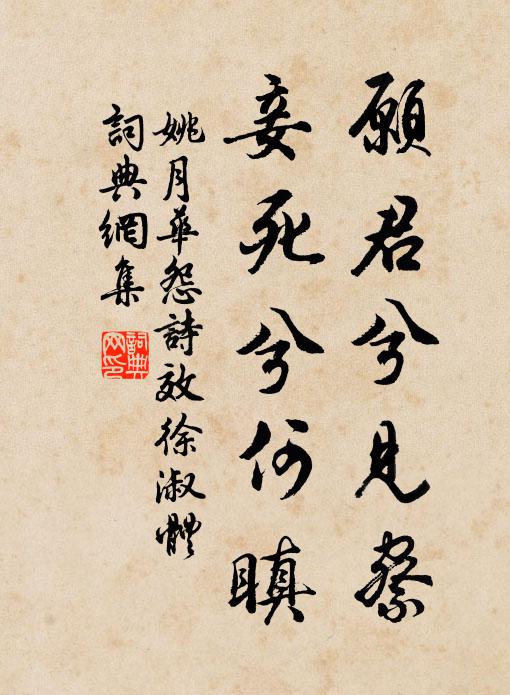 願君兮見察
妾死兮何瞋
姚月華怨詩效徐淑體
詞典網集
詞典
网印